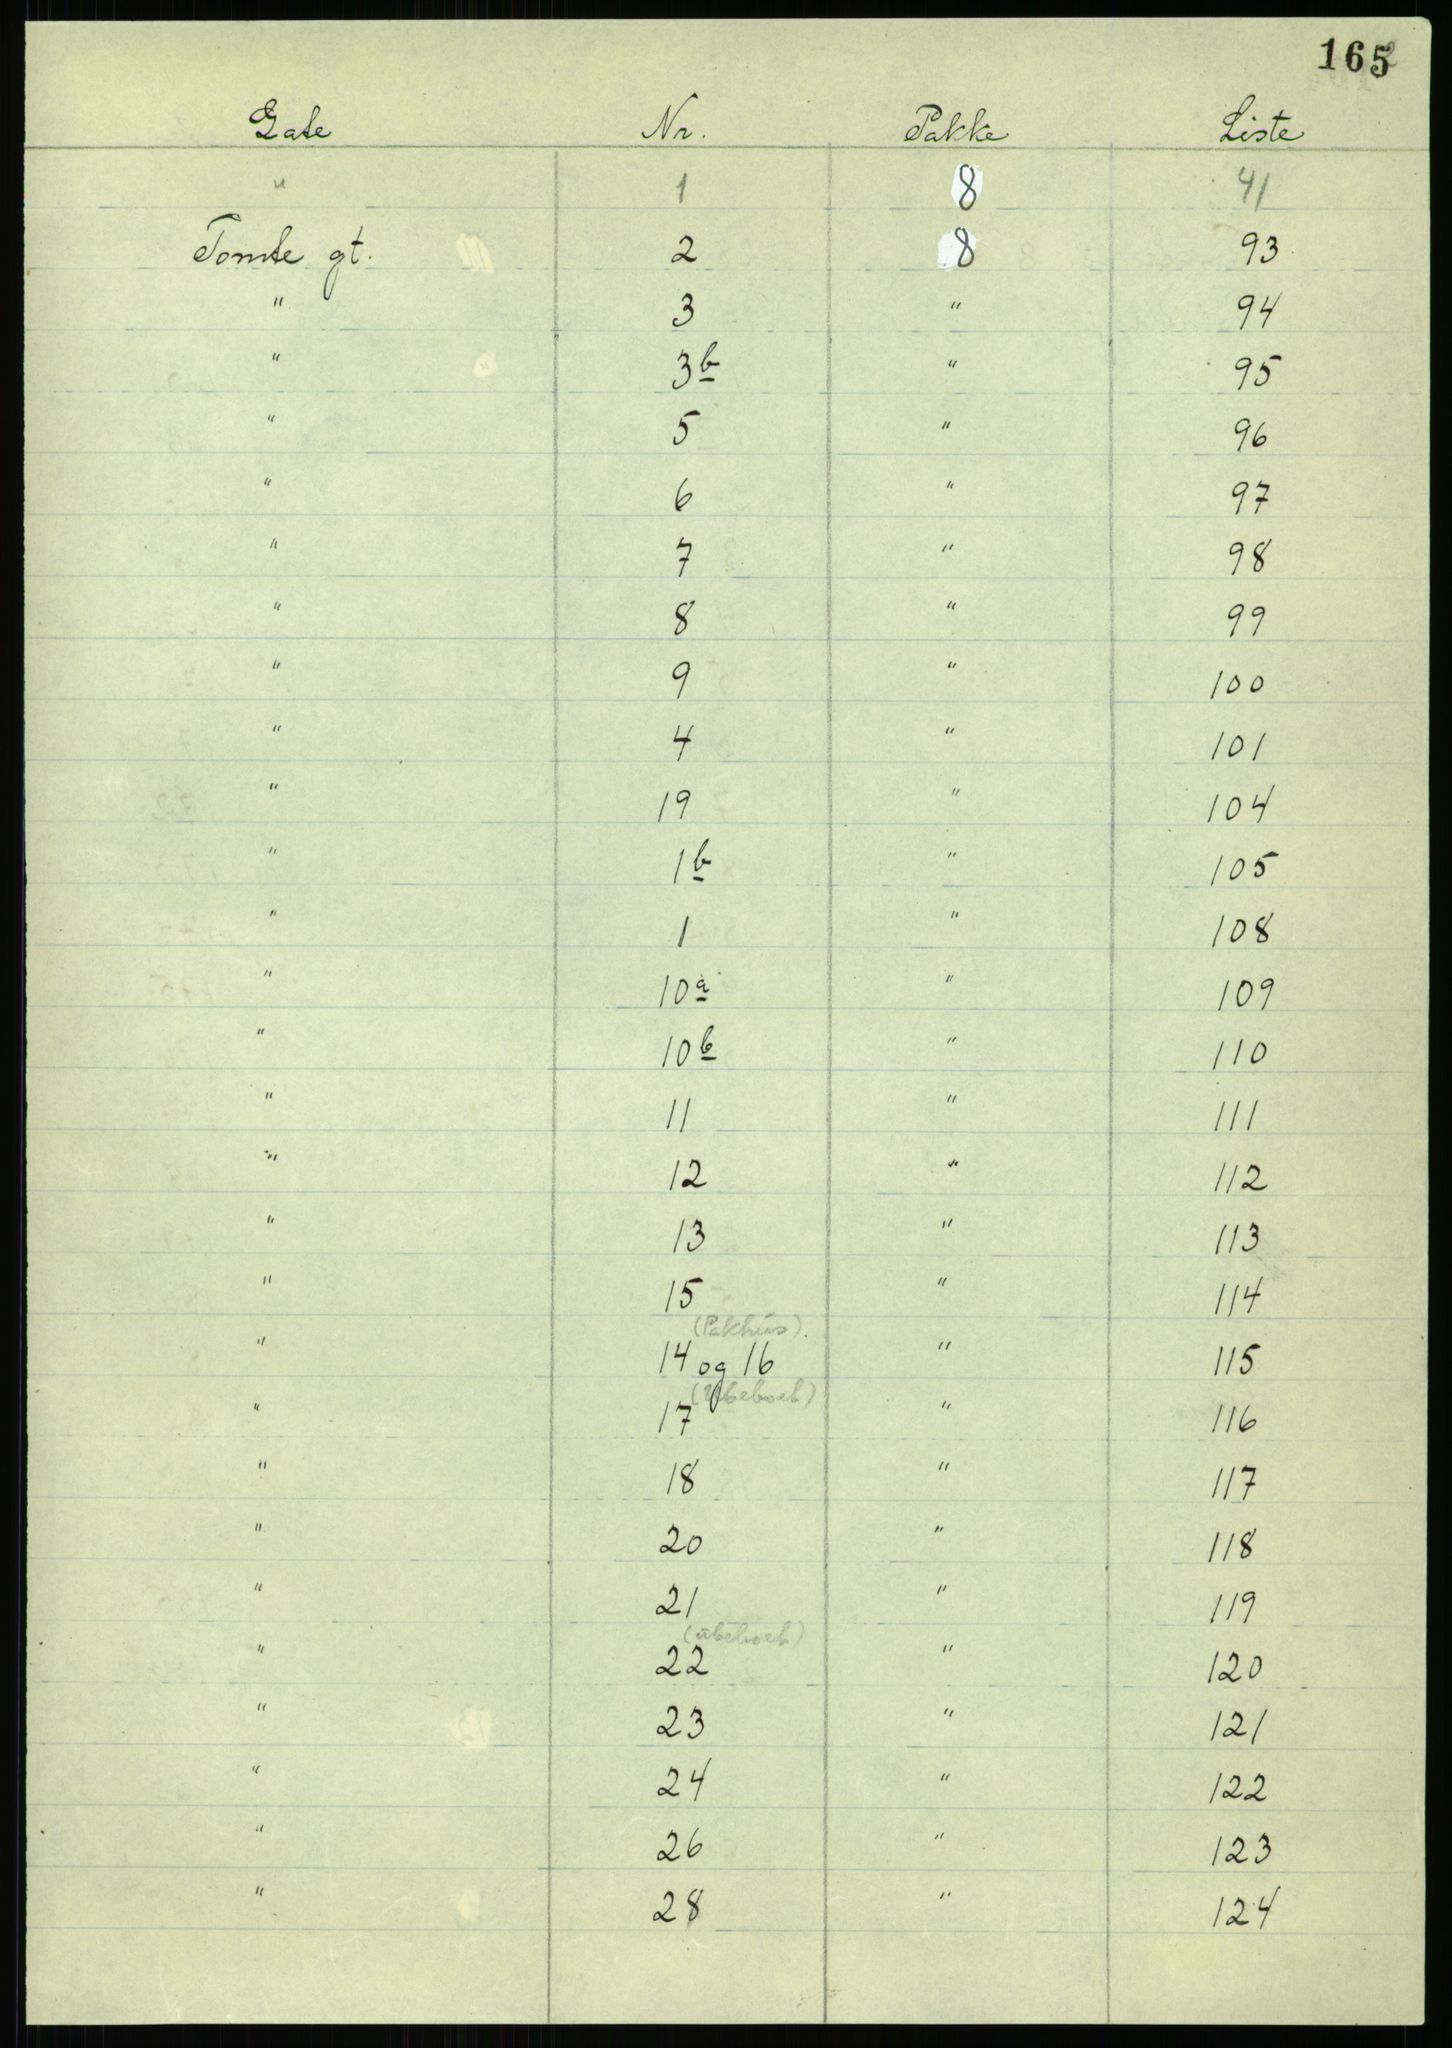 165
Gate Nr. Pakke Liste
" 1 8 41
Tomte gt. 2 8 93
" 3 " 94
" 3b " 95
" 5 " 96
" 6 " 97
" 7 " 98
" 8 " 99
" 9 " 100
" 4 " 101
" 19 " 104
" 1b " 105
" 1 " 108
" 10a " 109
" 10b " 110
" 11 " 111
" 12 " 112
" 13 " 113
" 15 " 114
(Pakhus).
" 14 og 16 " 115
(Ubeboeb)
" 17 " 116
" 18 " 117
" 20 " 118
" 21 " 119
(ubeboeb)
" 22 " 120
" 23 " 121
" 24 " 122
" 26 " 123
" 28 " 124